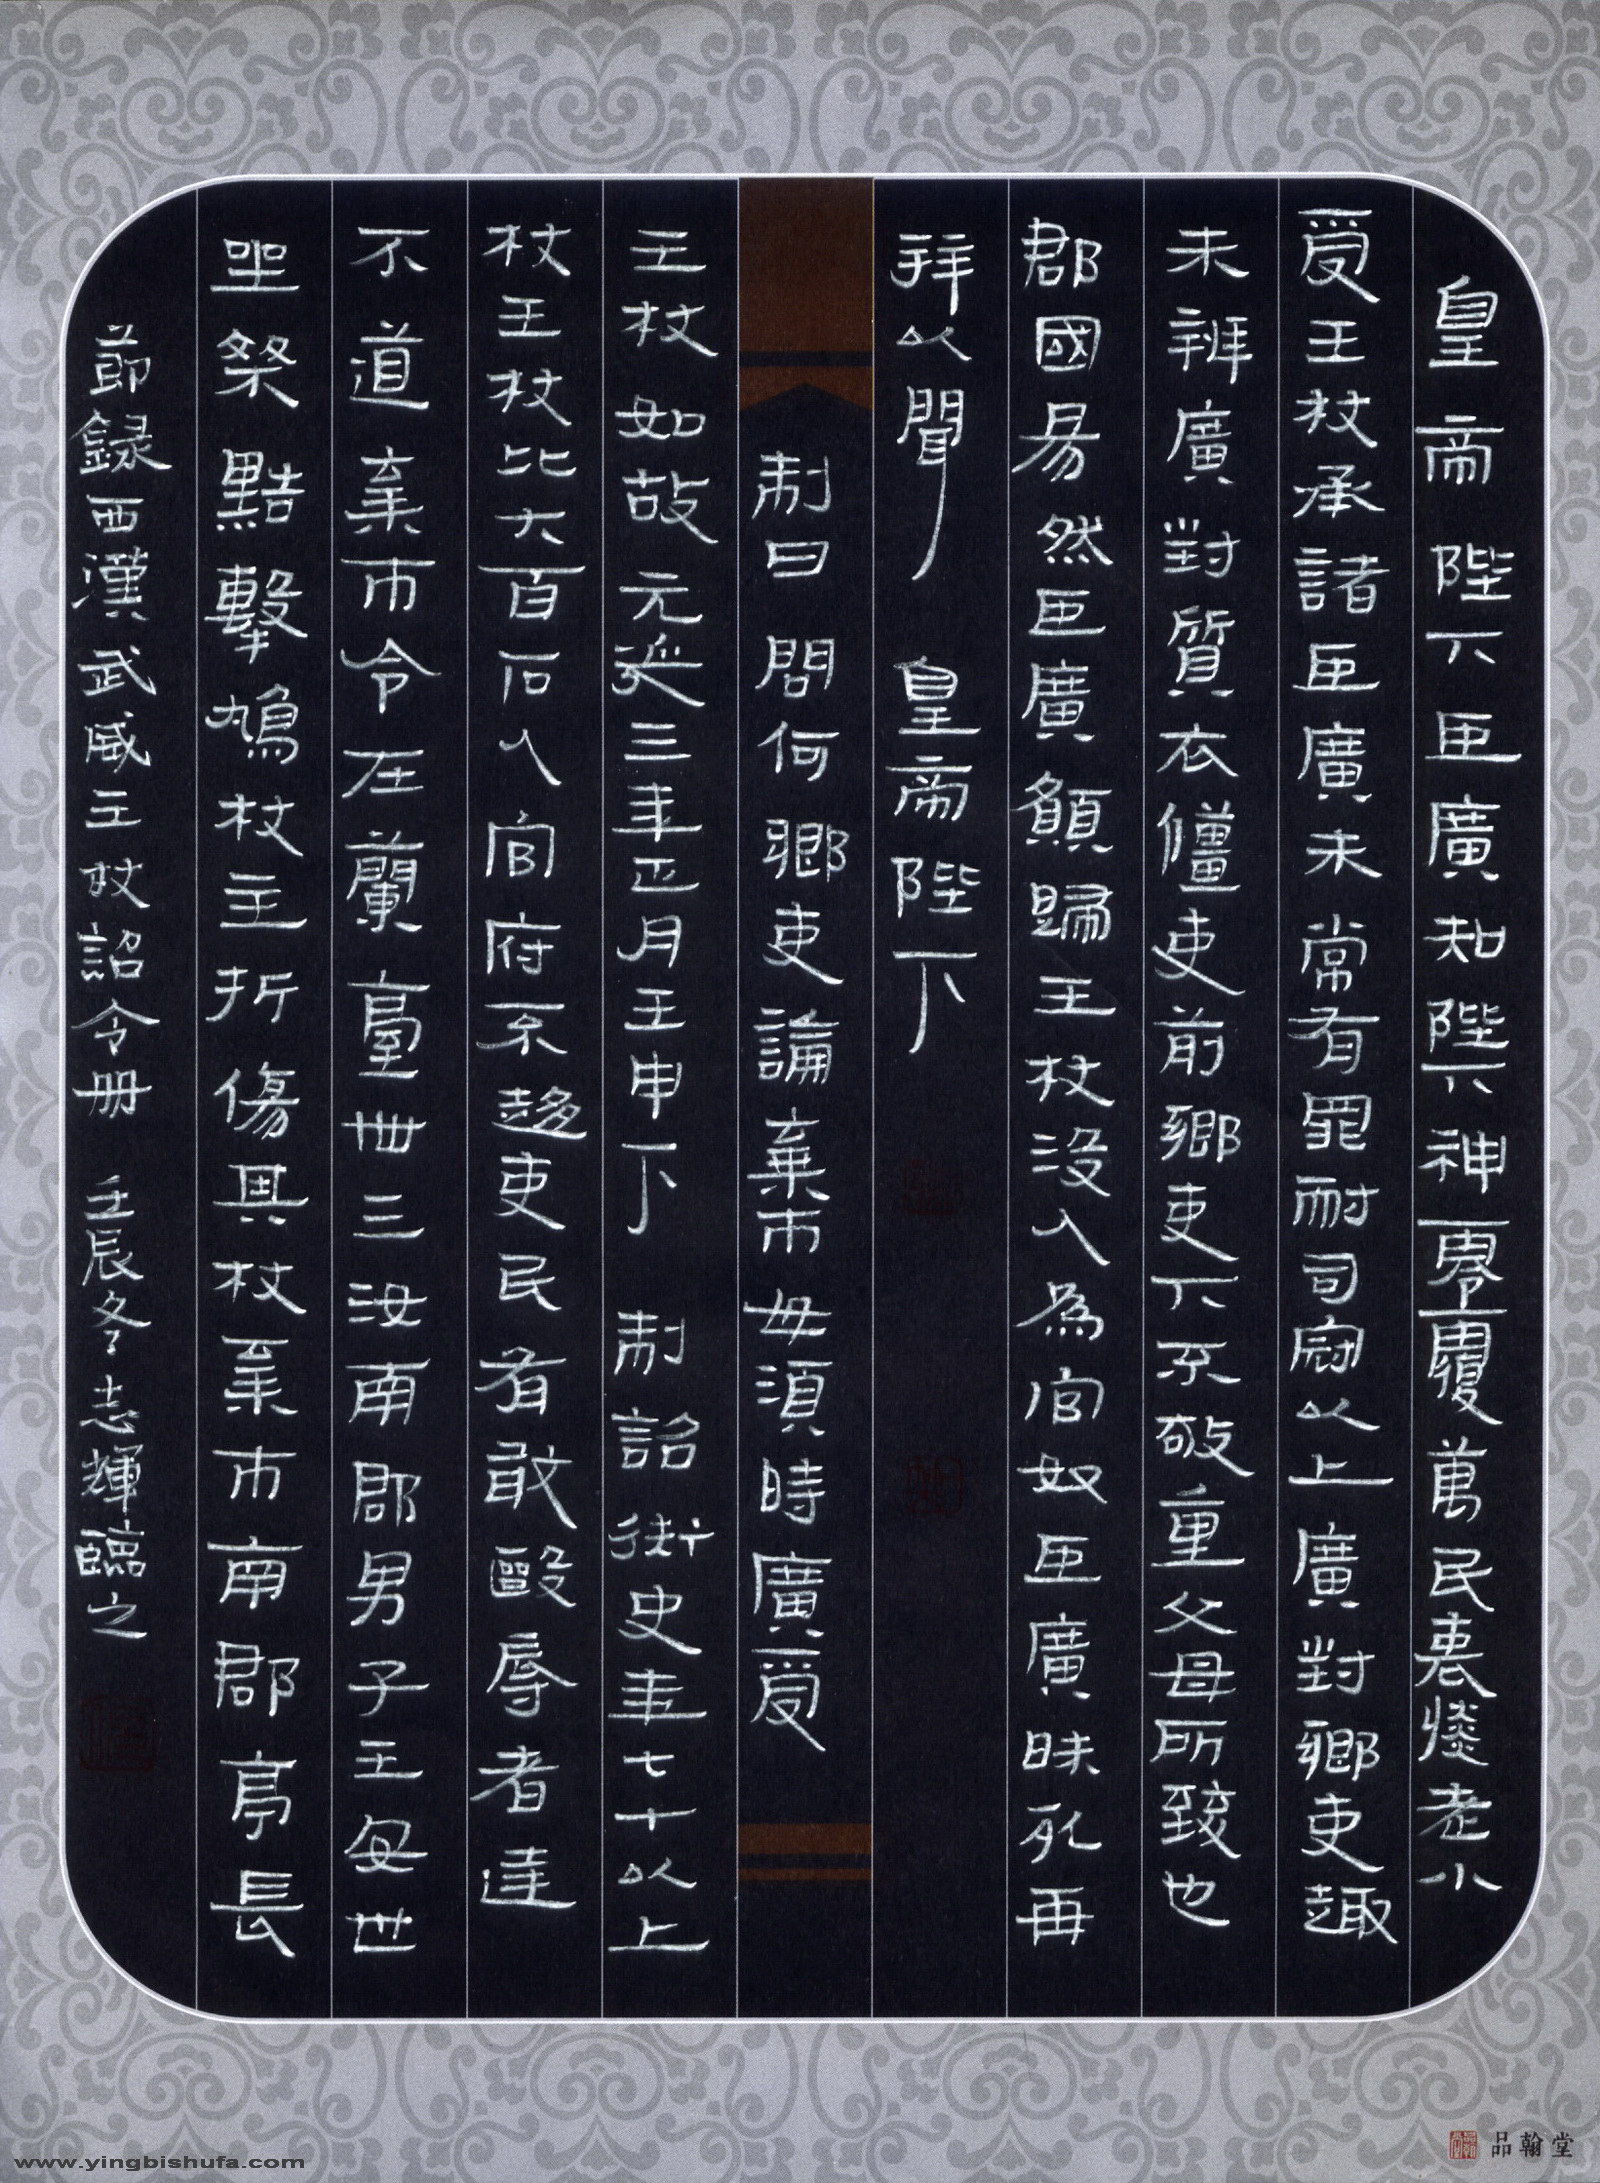 皇帝陛下臣廣知陛下神零覆萬民哀憐老小
受王杖承諸臣廣未常有罪耐司寇以上廣對鄉吏趣
未辨廣對質衣僵吏前鄉吏下不敬重父母所致也
郡國易然臣廣願歸王杖没入為官奴臣廣昧死再
拜以聞 皇帝陛下
制曰問何鄉吏論棄市毋須時廣受
王杖如故元延三年正月壬申下 制詔御史年七十以上
杖王杖比六百石入官府不趨吏民有敢毆辱者逆
不道棄市令在蘭臺卌三汝南郡男子王安世
坐桀黠擊鳩杖主折傷其杖棄市南郡亭長
節録西漢武威王杖詔令册 壬辰冬志輝臨之
www.yingbishufa.com
品翰堂